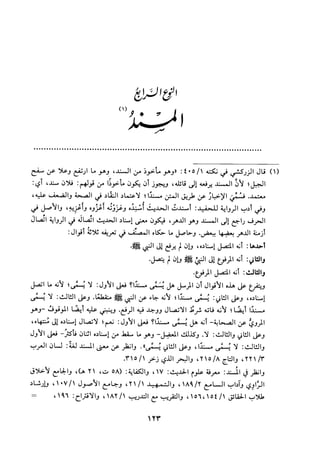 النوع الرابع
المسند (١)
(١) قال الزركشي في نكته ٤٠٥/١: «وهو مأخوذ من السند، وهو ما ارتفع وعلا عن سفح
الجبل؛ لأن المسند يرفعه إلى قائله، ويجوز أن يكون مأخوذا من قولهم: فلان سند، أي:
معتمد. فسُمِّيَ الإخبار عن طريق المتن مسنداً؛ لاعتماد النقاد في الصحة والضعف عليه،
وفي أدب الرواية للحفيد: أسندت الحديث أسنده وعزوته أعزوه وأعزيه، والأصل في
الحرف راجع إلى المسند وهو الدهر، فيكون معنى إسناد الحديث اتصاله في الرواية اتصال
أزمنة الدهر بعضها ببعض. وحاصل ما حكاه المصنف في تعريفه ثلاثة أقوال:
أحدها: أنه المتصل إسناده، وإن لم يرفع إلى النبي ﷺ.
والثاني: أنه المرفوع إلى النبي ﷺ وإن لم يتصل.
والثالث: أنه المتصل المرفوع.
ويتفرع على هذه الأقوال أن المرسل هل يُسمى مسنداً؟ فعلى الأول: لا يُسمى؛ لأنه ما اتصل
إسناده، وعلى الثاني: يُسمى مسنداً؛ لأنه جاء عن النبي ﷺ منقطعا. وعلى الثالث: لا يُسمى
مسنداً أيضاً؛ لأنه فاته شرط الاتصال ووجد فيه الرفع. وينبني عليه أيضاً الموقوف – وهو
المروي عن الصحابة – أنه هل يُسمى مسنداً؟ فعلى الأول: نعم؛ لاتصال إسناده إلى منتهاه،
وعلى الثاني والثالث: لا. وكذلك المعضل – وهو ما سقط من إسناده اثنان فأكثر – فعلى الأول
والثالث: لا يُسمى مسنداً، وعلى الثاني يُسمى». وانظر عن معنى المسند لغةً: لسان العرب
٢٢١/٣، والتاج ٢١٥/٨، والبحر الذي زخر ٣١٥/١.
وانظر في المُسند: معرفة علوم الحديث: ١٧، والكفاية: (٥٨ ت، ٢١ هـ)، والجامع لأخلاق
الراوي وآداب السامع ١٨٩/٢، والتمهيد ٢١/١، وجامع الأصول ١٠٧/١، وإرشاد
طلاب الحقائق ١٥٤/١، ١٥٦، والتقريب مع التدريب ١٨٢/١، والاقتراح: ١٩٦، =
١٢٣